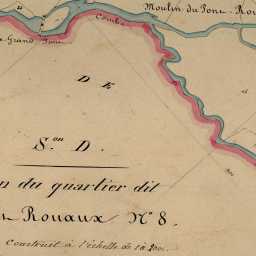 Moulin du Pont-Rou
Grand
DE
S.on D.
n du quartier dit
Rouaux N° 8.
Construit à l'échelle de 1 à